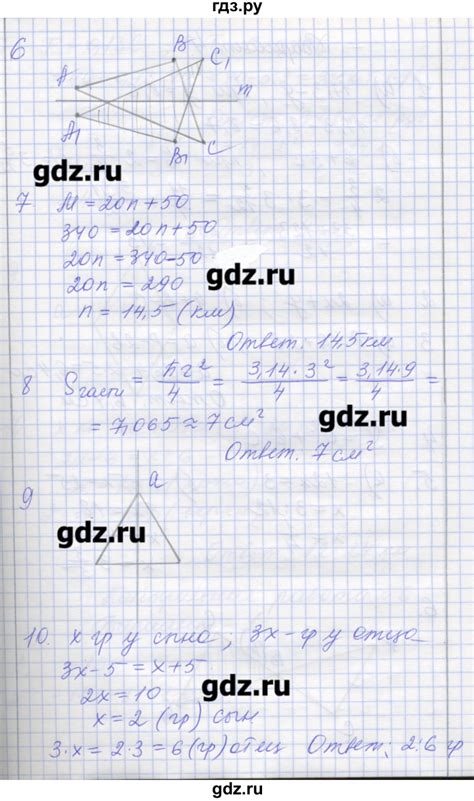 гдз.ру
6
B
C₁
A
m
A₁
B₁
C
gdz.ru
7 M = 20n + 50
340 = 20n + 50
20n = 340 - 50
20n = 290
gdz.ru
n = 14,5 (км)
Ответ: 14,5 км
8 Sчасти = πr²/4 = 3,14 · 3²/4 = 3,14 · 9/4 =
gdz.ru
= 7,065 ≈ 7 см²
Ответ: 7 см²
9
a
gdz.ru
10. x гр у сына; 3x - гр у отца
3x - 5 = x + 5
2x = 10
gdz.ru
x = 2 (гр) сын
3 · x = 2 · 3 = 6 (гр) отец Ответ: 2; 6 гр
gdz.ru